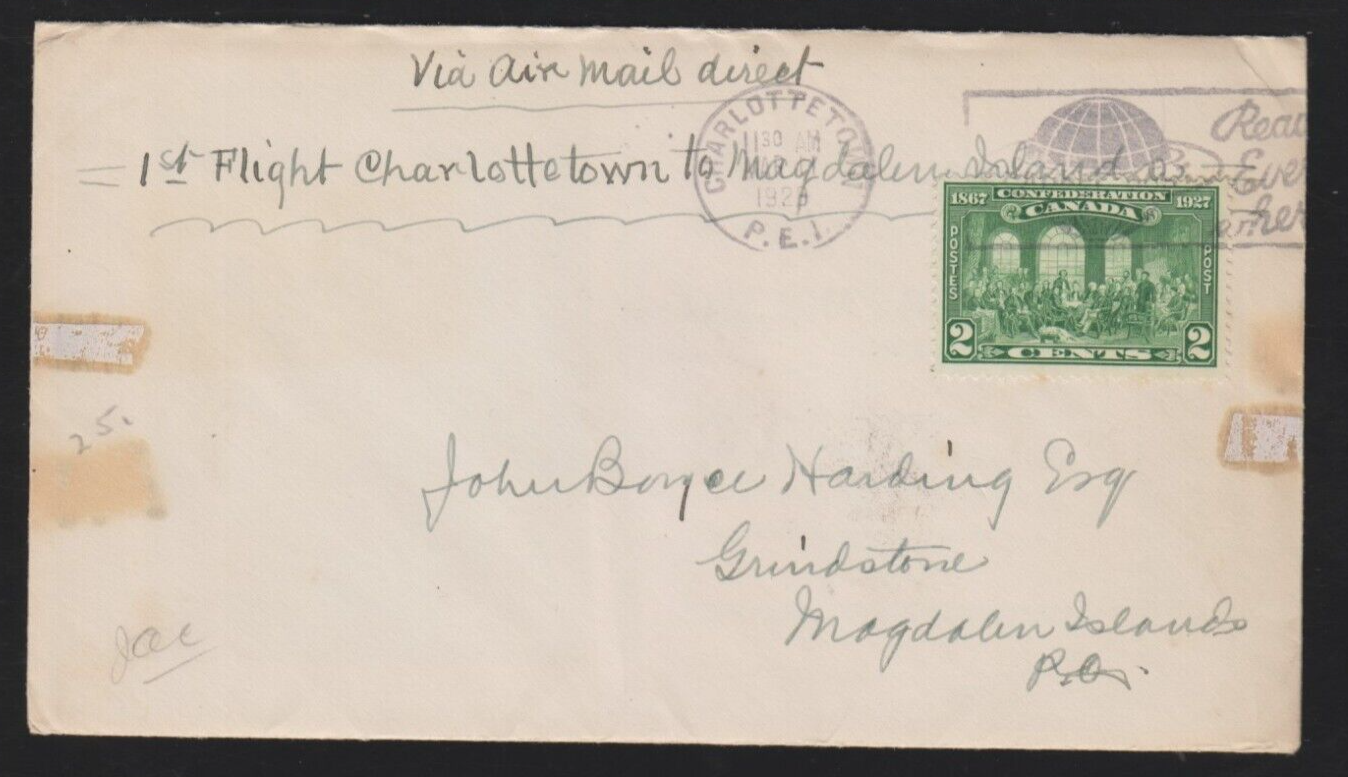 Via Air Mail direct
1st Flight Charlottetown to Magdalen Islands
CHARLOTTETOWN
11 30 AM
1928
P.E.I.
1867 CONFEDERATION 1927
CANADA
POSTES POST
2 CENTS 2
25.
John Boyce Harding Esq
Grindstone
Magdalen Islands
P.Q.